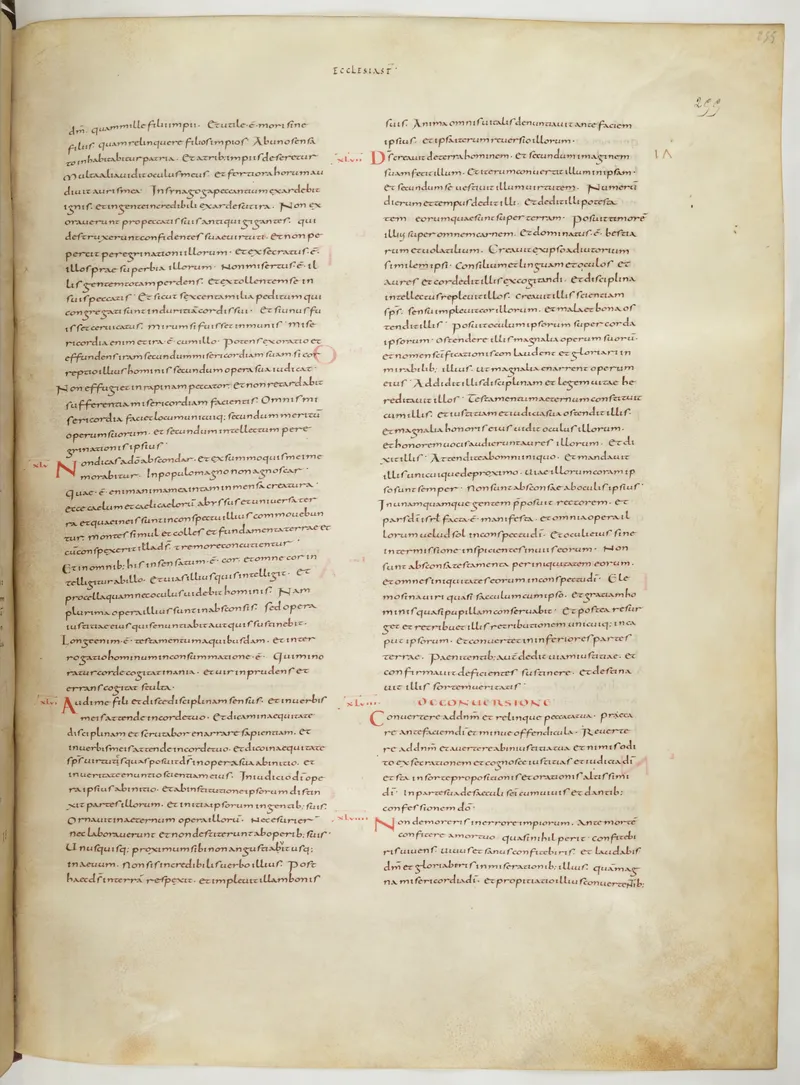 ECCLESIAST
255
299
dm̄. quam mille filii impii. Et utile ē mori sine
filiis quam relinquere filios impios. Ab uno sensa
to inhabitabitur patria. Et a trib; impiis deseretur
Multa alia uidit oculus meus. et fortiora horum au
diuit auris mea. In synagoga peccantium exardebit
ignis. et in gente incredibili exardescit ira. Non ex
orauerunt pro peccatis suis antiqui gigantes. qui
destructi erunt confidentes suae uirtuti. et non pe
percit peregrinationi illorum. Et exsecratus ē.
illos prae superbia illorum. Non misertus ē. il
lis gentem totam perdens. Et extollentem se in
suis peccatis. Et sicut sexcenta milia peditum qui
congregati sunt in duritia cordis sui. Et si unus fu
isset ceruicatus. mirum si fuisset inmunis. Mise
ricordia enim et ira ē. cum illo. Potens exoratio et
effundens iram secundum misericordiam suam sic cor
reptio illius hominis secundum opera sua iudicat
Non effugiet in rapinam peccator. Et non retardabit
sufferentia misericordiam facientis. Omnis mi
sericordia faciet locum unicuiq; secundum meritū
operum suorum. et secundum intellectum pere
grinationis ipsius
xlv. Non dicas a dō abscondar. et ex summo quis mei me
morabitur. In populo magno non agnoscar
Quae ē. enim anima mea in tam inmensa creatura
ecce caelum et caeli caelorū abyssus et uniuersa ter
ra et quae in eis sunt in conspectu illius commouebun
tur. montes simul et colles et fundamenta terrae et
cū conspexerit illa ds̄. tremore concutientur
Et in omnib; his insensatum ē. cor. et omne cor in
tellegitur ab illo. Et uias illius quis intellegit. Et
procellam quam nec oculus uidebit hominis. Nam
plurima opera illius sunt in absconsis. sed opera
iustitiae eius quis enuntiabit aut quis sustinebit.
Longe enim ē. testamentum a quibusdam. et inter
rogatio hominum in consummatione ē. Qui mino
ratur corde cogitat inania. et uir inprudens et
errans cogitat stulta.
xlvi. Audi me fili et disce disciplinam sensus. et in uerbis
meis attende in corde tuo. Et dicam in aequitate
disciplinam et scrutabor enarrare sapientiam. et
in uerbis meis attende in corde tuo. et dico in aequitate
sps̄ uirtutes quas posuit ds̄ in opera sua ab initio. et
in ueritate enuntio scientiam eius. In iudicio dī ope
ra ipsius ab initio. et ab institutione ipsorum distin
xit partes illorum. et initia ipsorum in gentib; suis.
Ornauit in aeternum opera illorū. Nec esurier̄
nec laborauerunt et non destiterunt ab operib; suis.
Unusquisq; proximum sibi non angustabit usq;
in aeuum. Non sis incredibilis uerbo illius. Post
haec ds̄ in terrā respexit. et impleuit illam bonis
suis. Anima omnis uitalis denuntiauit ante faciem
ipsius. et ipsa iterum reuersio illorum.
xlvii. Ds̄ creauit de terra hominem. et secundum imaginem
suam fecit illum. Et iterum conuertit illum in ipsam.
et secundum se uestiuit illum uirtutem. Numerū
dierum et tempus dedit illi. Et dedit illi potesta
tem eorum quae sunt super terram. Posuit timorē
illius super omnem carnem. Et dominatus ē. bestia
rum et uolatilium. Creauit ex ipso adiutorium
similem ipsi. Consilium et linguam et oculos et
aures et cor dedit illis excogitandi. Et disciplina
intellectus repleuit illos. creauit illis scientiam
sps̄. sensu impleuit cor illorum. et mala et bona os
tendit illis. Posuit oculum ipsorum super corda
ipsorum. ostendere illis magnalia operum suorū.
et nomen scīficationis conlaudent et gloriari in
mirabilib; illius. ut magnalia enarrent operum
eius. Addidit illis disciplinam et legem uitae he
reditauit illos. Testamentum aeternum constituit
cum illis. et iustitiam et iudicia sua ostendit illis.
et magnalia honoris eius uidit oculus illorum.
et honorem uocis audierunt aures illorum. Et di
xit illis. Attendite ab omni iniquo. Et mandauit
illis unicuique de proximo. Uiae illorum coram ip
so sunt semper. Non sunt absconsae ab oculis ipsius
In unamquamque gentem p̄posuit rectorem. et
pars dī isrl̄ facta ē. manifesta. et omnia opera il
lorum uelud sol in conspectu dī. Et oculi eius sine
intermissione inspicientes in uiis eorum. Non
sunt absconsa testamenta per iniquitatem eorum.
et omnes iniquitates eorum in conspectu dī. Ele
mosina uiri quasi sacculum cum ipso. Et gratiam ho
minis quasi pupillam conseruabit. Et postea resur
get et retribuet illis retributionem unicuiq; in ca
put ipsorum. Et conuertet in inferiores partes
terrae. Paenitentib; autē dedit uiam iustitiae. et
confirmauit deficientes sustinere. et destina
uit illis sortem ueritatis.
xlviii. DE CONUERSIONE
Conuertere ad dnm̄ et relinque peccata tua. praeca
re ante faciem dī et minue offendicula. Reuerte
re ad dnm̄ et auertere ab iniustitia tua et nimis odi
to exsecrationem et cognosce iustitias et iudicia dī
et sta in sorte propositionis et orationis altissimi
dī. In partes uade saeculi scī cum uiuis et dantib;
confessionem dō.
xlviiii. Non demoreris in errore impiorum. Ante mortē
confitere a mortuo quasi nihil perit confitebi
ris uiuens. Uiuus et sanus confiteberis. et laudabis
dm̄ et gloriaberis in miserationib; illius. quā mag
na misericordia dī. Et propitiatio illius conuertentib;